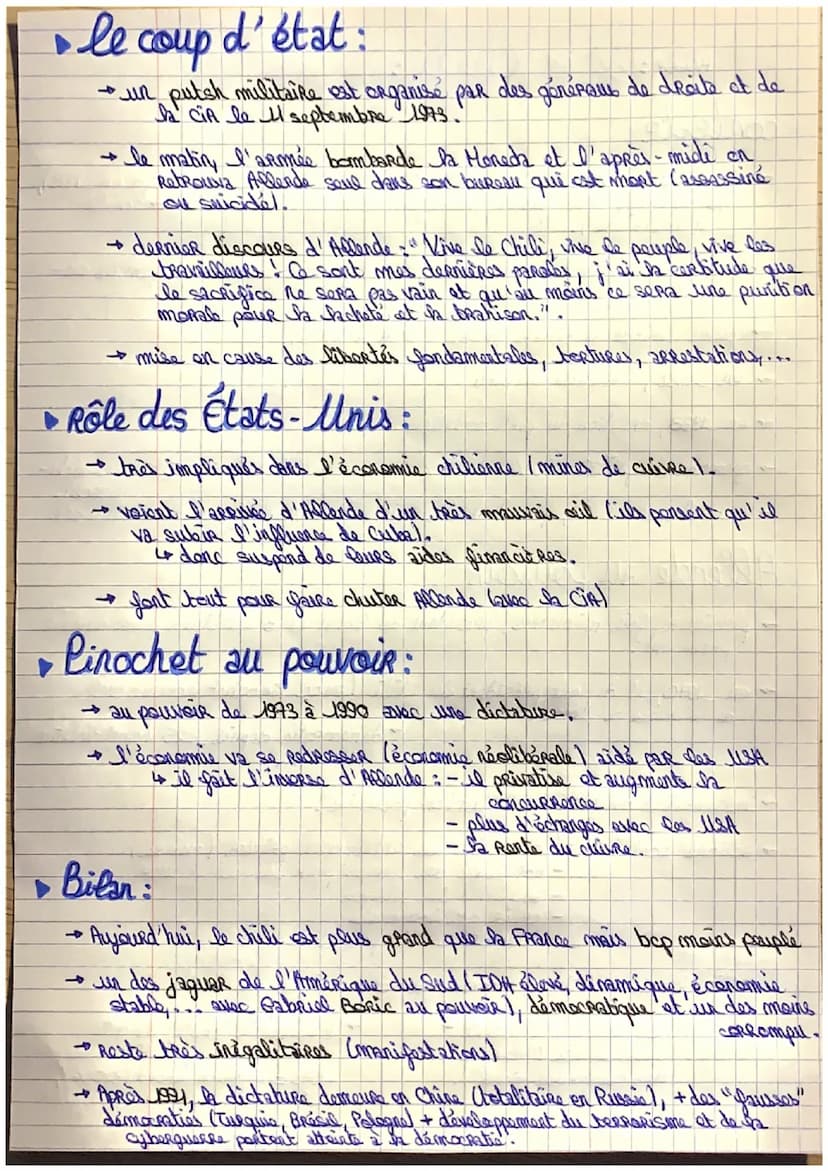 ▸ Le coup d'état :
→ un putsh militaire est organisé par des généraux de droite et de
la CIA le 11 septembre 1973.
→ le matin, l'armée bombarde la Moneda et l'après-midi on
retrouva Allende seul dans son bureau qui est mort (assassiné
ou suicidé).
→ dernier discours d'Allende : "Vive le Chili, vive le peuple, vive les
travailleurs ! Ce sont mes dernières paroles, j'ai la certitude que
le sacrifice ne sera pas vain et qu'au moins ce sera une punition
morale pour la lacheté et la trahison.".
→ mise en cause des libertés fondamentales, tortures, arrestations,...
▸ Rôle des États-Unis :
→ très impliqués dans l'économie chilienne (mines de cuivre).
→ voient l'arrivée d'Allende d'un très mauvais œil (ils pensent qu'il
va subir l'influence de Cuba).
↳ donc suspend de leurs aides financières.
→ font tout pour faire chuter Allende (avec la CIA)
▸ Pinochet au pouvoir :
→ au pouvoir de 1973 à 1990 avec une dictature.
→ l'économie va se redresser (économie néolibérale) aidé par les USA
↳ il fait l'inverse d'Allende : - il privatise et augmente la
concurrence
- plus d'échanges avec les USA
- la rente du cuivre.
▸ Bilan :
→ Aujourd'hui, le chili est plus grand que la France mais bcp moins peuplé
→ un des jaguar de l'Amérique du Sud (IDH élevé, dinamique, économie
stable,... avec Gabriel Boric au pouvoir), démocratique et un des moins
corrompu.
→ Reste très inégalitaires (manifestations)
→ Après 1991, la dictature demeure en Chine (totalitaire en Russie), + des "fausses"
démocraties (Turquie, Brésil, Pologne) + développement du terrorisme et de la
cyberguerre portent atteinte à la démocratie.